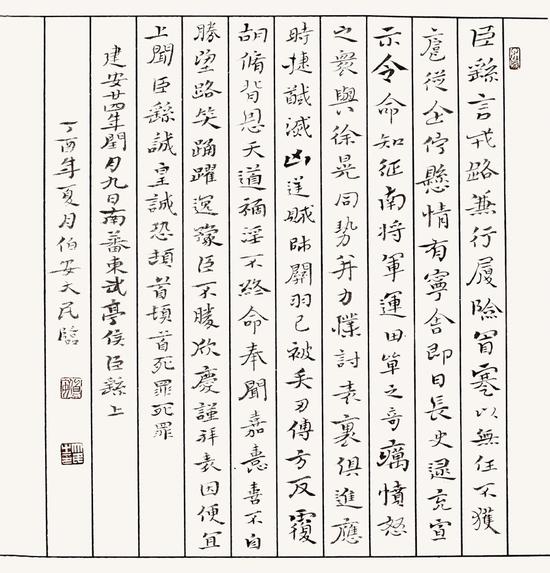 臣繇言戎路兼行履險冒寒以無任不獲
扈從企佇懸情有寧舍即日長史逯充宣
示令命知征南將軍運田單之奇厲憤怒
之衆與徐晃同勢并力撲討表裏俱進應
時捷馘滅凶逆賊帥關羽已被矢刃傅方反覆
胡脩背恩天道禍淫不終命奉聞嘉憙喜不自
勝望路笑踊躍逸豫臣不勝欣慶謹拜表因便宜
上聞臣繇誠皇誠恐頓首頓首死罪死罪
建安廿四年閏月九日南蕃東武亭侯臣繇上
丁酉年夏月伯安大民臨